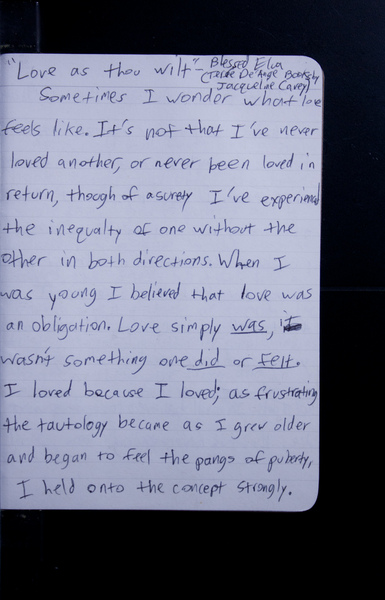 "Love as thou wilt" - Blessed Elua
(Terre De Ange Books by
Jacqueline Carey)
Sometimes I wonder what love
feels like. It's not that I've never
loved another, or never been loved in
return, though of a surety I've experienced
the inequalty of one without the
other in both directions. When I
was young I believed that love was
an obligation. Love simply was, it
wasn't something one did or felt.
I loved because I loved; as frustrating
the tautology became as I grew older
and began to feel the pangs of puberty,
I held onto the concept strongly.